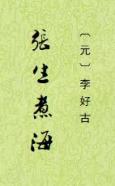 〔元〕李好古
张生煮海